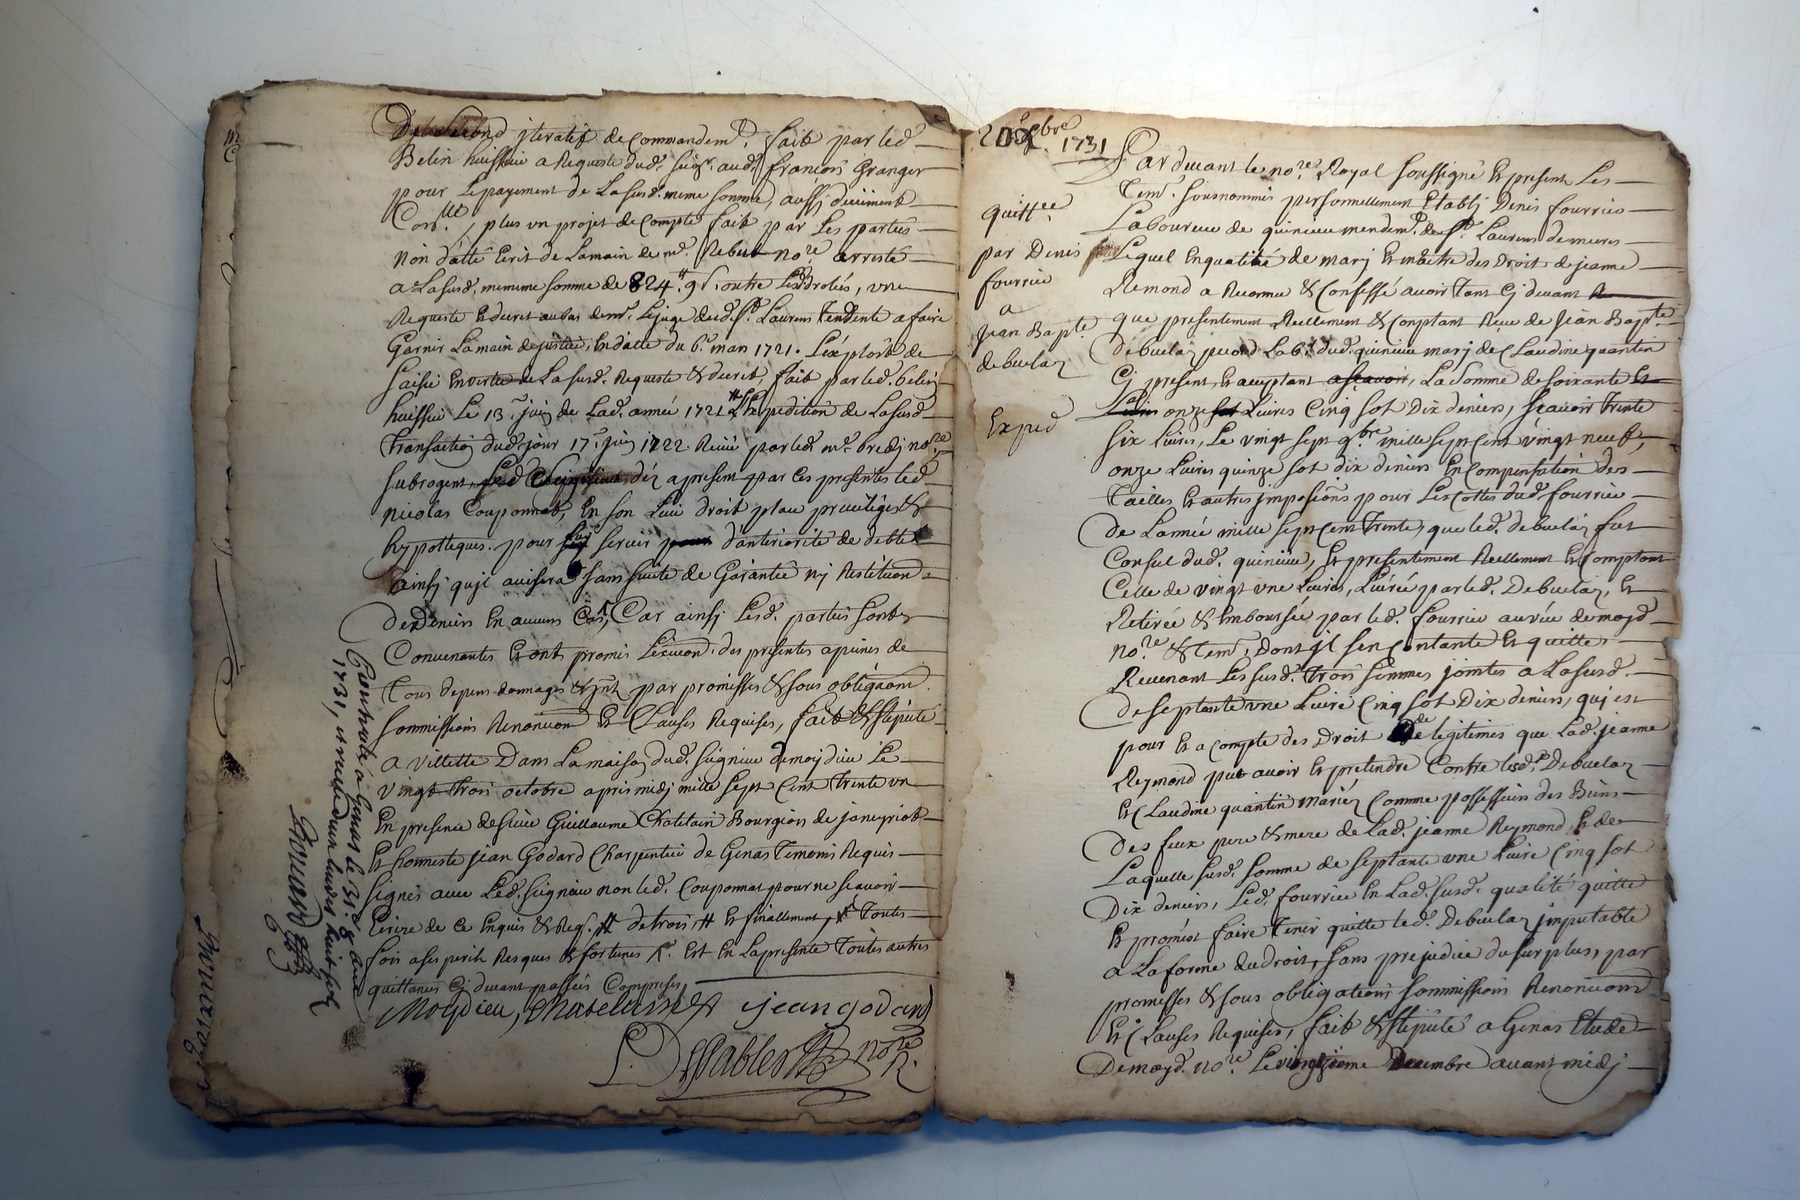 second jteratif de Commandemt, fait par led
Belin huissier a Requeste dud. seigr. aud. françois Granger
pour Le payement de La susd. meme somme, aussj duement
Conllé, plus un projet de Compte fait par Les parties
non datté Ecrit de Lamain de me. Rebut nore. arresté
a La susd. mememe somme de 824 ₶ 9 s. outre Lesd. , une
Requeste & decret au bas de mr. Le juge dud. st. Laurens Tendente a faire
Garnir La main de justice, En datte du 6e. mars 1721. L'exploit de
saisie En vertu de La susd. Requeste & decret, fait par led. belin
huissier Le 13e. juin de Lad. année 1721 & L'Expedition de La susd
Transaction dud. jour 17e. juin 1722. Reçue par led. me. bredj nore
subrogeant, déz a present par Ces presentes led
nicolas Couponnat, En son Lieu droit place privileges &
hypotteques. pour servir d'anteriorité de debte
ainsj qu'jl avisera sans suitte de Garantie nj Restitution
de Deniers En aucuns Cas, Car ainsj Lesd. parties sont
Convenantes Et ont promis L'exécution des presentes a peines de
Tous depens domages & jnts. par promesses & sous obligaons.
sommissions Renonciaon Et Clauses Requises, fait & stipulé
a villette Dans La maison dud. seigneur demoidieu Le
vingt trois octobre apres midj mille sept Cent trente un
En presence de sieur Guillaume Chatelain Bourgeois de janeyriat
Et honneste jean Godard Charpentier de Genas Temoins Requis
signés avec Led. seigneur non led. Couponnat pour ne sçavoir
Ecrire de Ce Enquis & Reqs. # de trois # Et finallement, Toutes
fois a ses perils Resques & fortunes Est En La presente Toutes autres
quittances Cj devant passées Comprises,
Moydieu, Chatelain jean godard
Desablers nore R.
Controllé a Genas le 31e. 8bre
1731, et receu douze livres huit sols
20e Xbre. 1731
quittce
par Denis
fourrier
a
Jean Bapte.
debuclaz
Exped
Par devant le nore. Royal soussigné & presents Les
Tems. sousnommés personnellement Etablj Denis fourrier
Laboureur de quincieu mendemt. de st. Laurens demures
Lequel En qualité de marj Et maitre des Droit de jeanne
Remond a Reconnu & Confessé avoir Tant Cj devant
que presentement Reellement & Comptant Receu de Jean Bapte.
debuclaz Labr. dud. quincieu marj de Claudine quantin
Cj present, Et acceptant, La Somme de soixante
onze Livres Cinq sot Dix deniers, sçavoir trente
six Livres, Le vingt sept 9bre mille sept Cent vingt neuf,
onze Livres quinze sot dix deniers En Compensation des
Tailles Et autres jmposions pour Les Cottes dud. fourrier
de L'année mille sept Cent Trente, que led. debuclaz fut
Consul dud. quincieu, Et presentement Reellement Et Comptant
Celle de vingt une Livres, Livrée par led. Debuclaz, Et
Retirée & Emboursée par led. fourrier au vûe de moyd
nore. & Tems. Dont jl s'en Contante Et quitte
Revenant Les susd. trois sommes jointes a La susd.
de septante une Livre Cinq sot Dix deniers, qui est
pour Et a Compte des Droit de legitimes que Lad. jeanne
Reymond put avoir Et pretendre Contre lesd. Debuclaz
Et Claudine quantin mariez Comme possesseurs des Biens
Des feux pere & mere de Lad. jeanne Reymond, Et de
Laquelle susd. somme de septante une Livre Cinq sot
Dix deniers, Led. fourrier En Lad. susd. qualité quitte
Et promest faire Tenir quitte led. Debuclaz jmputable
a La forme du droit, sans prejudice du surplus, par
promesses & sous obligations sommissions Renonciaons
Et Clauses Requises, fait & stipulé a Genas Etude
De moyd. nore. Le vingtieme Decembre avant midj